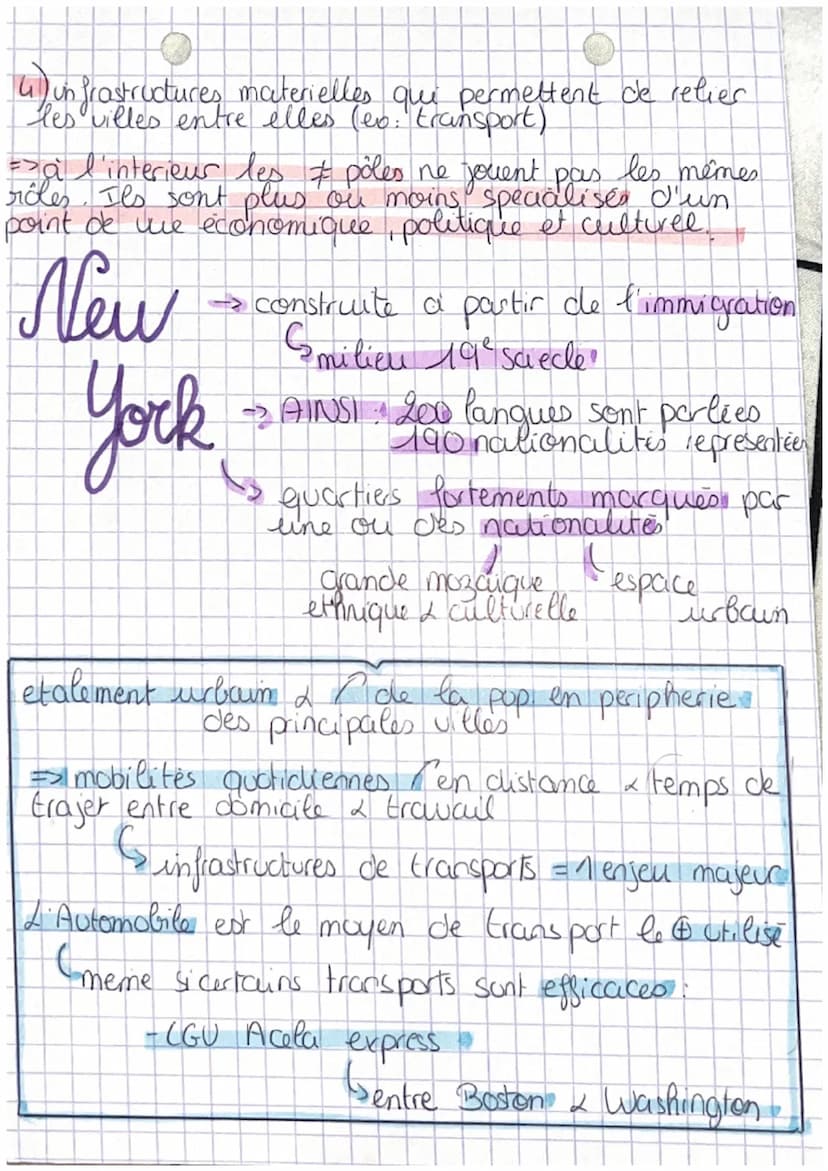 4) infrastructures materielles qui permettent de relier
les villes entre elles (ex: transport)
=> à l'interieur les ≠ pôles ne jouent pas les mêmes
rôles. Ils sont plus ou moins spécialisés d'un
point de vue économique, politique et culturel.
New
York
→ construite à partir de l'immigration
↳ milieu 19e saecle
→ AINSI : 200 langues sont parlées
190 nationalités représentées
↳ quartiers fortements marqués par
une ou des nationalités
grande mozaïque
ethnique & culturelle
espace
urbain
etalement urbain & ↗ de la pop. en peripherie
des principales villes
=> mobilités quotidiennes ↗ en distance & temps de
trajet entre domicile & travail
↳ infrastructures de transports = 1 enjeu majeur
L'Automobile est le moyen de transport le ⊕ utilisé
↳ meme si certains transports sont efficaces :
- LGV Acela express
↳ entre Boston & Washington